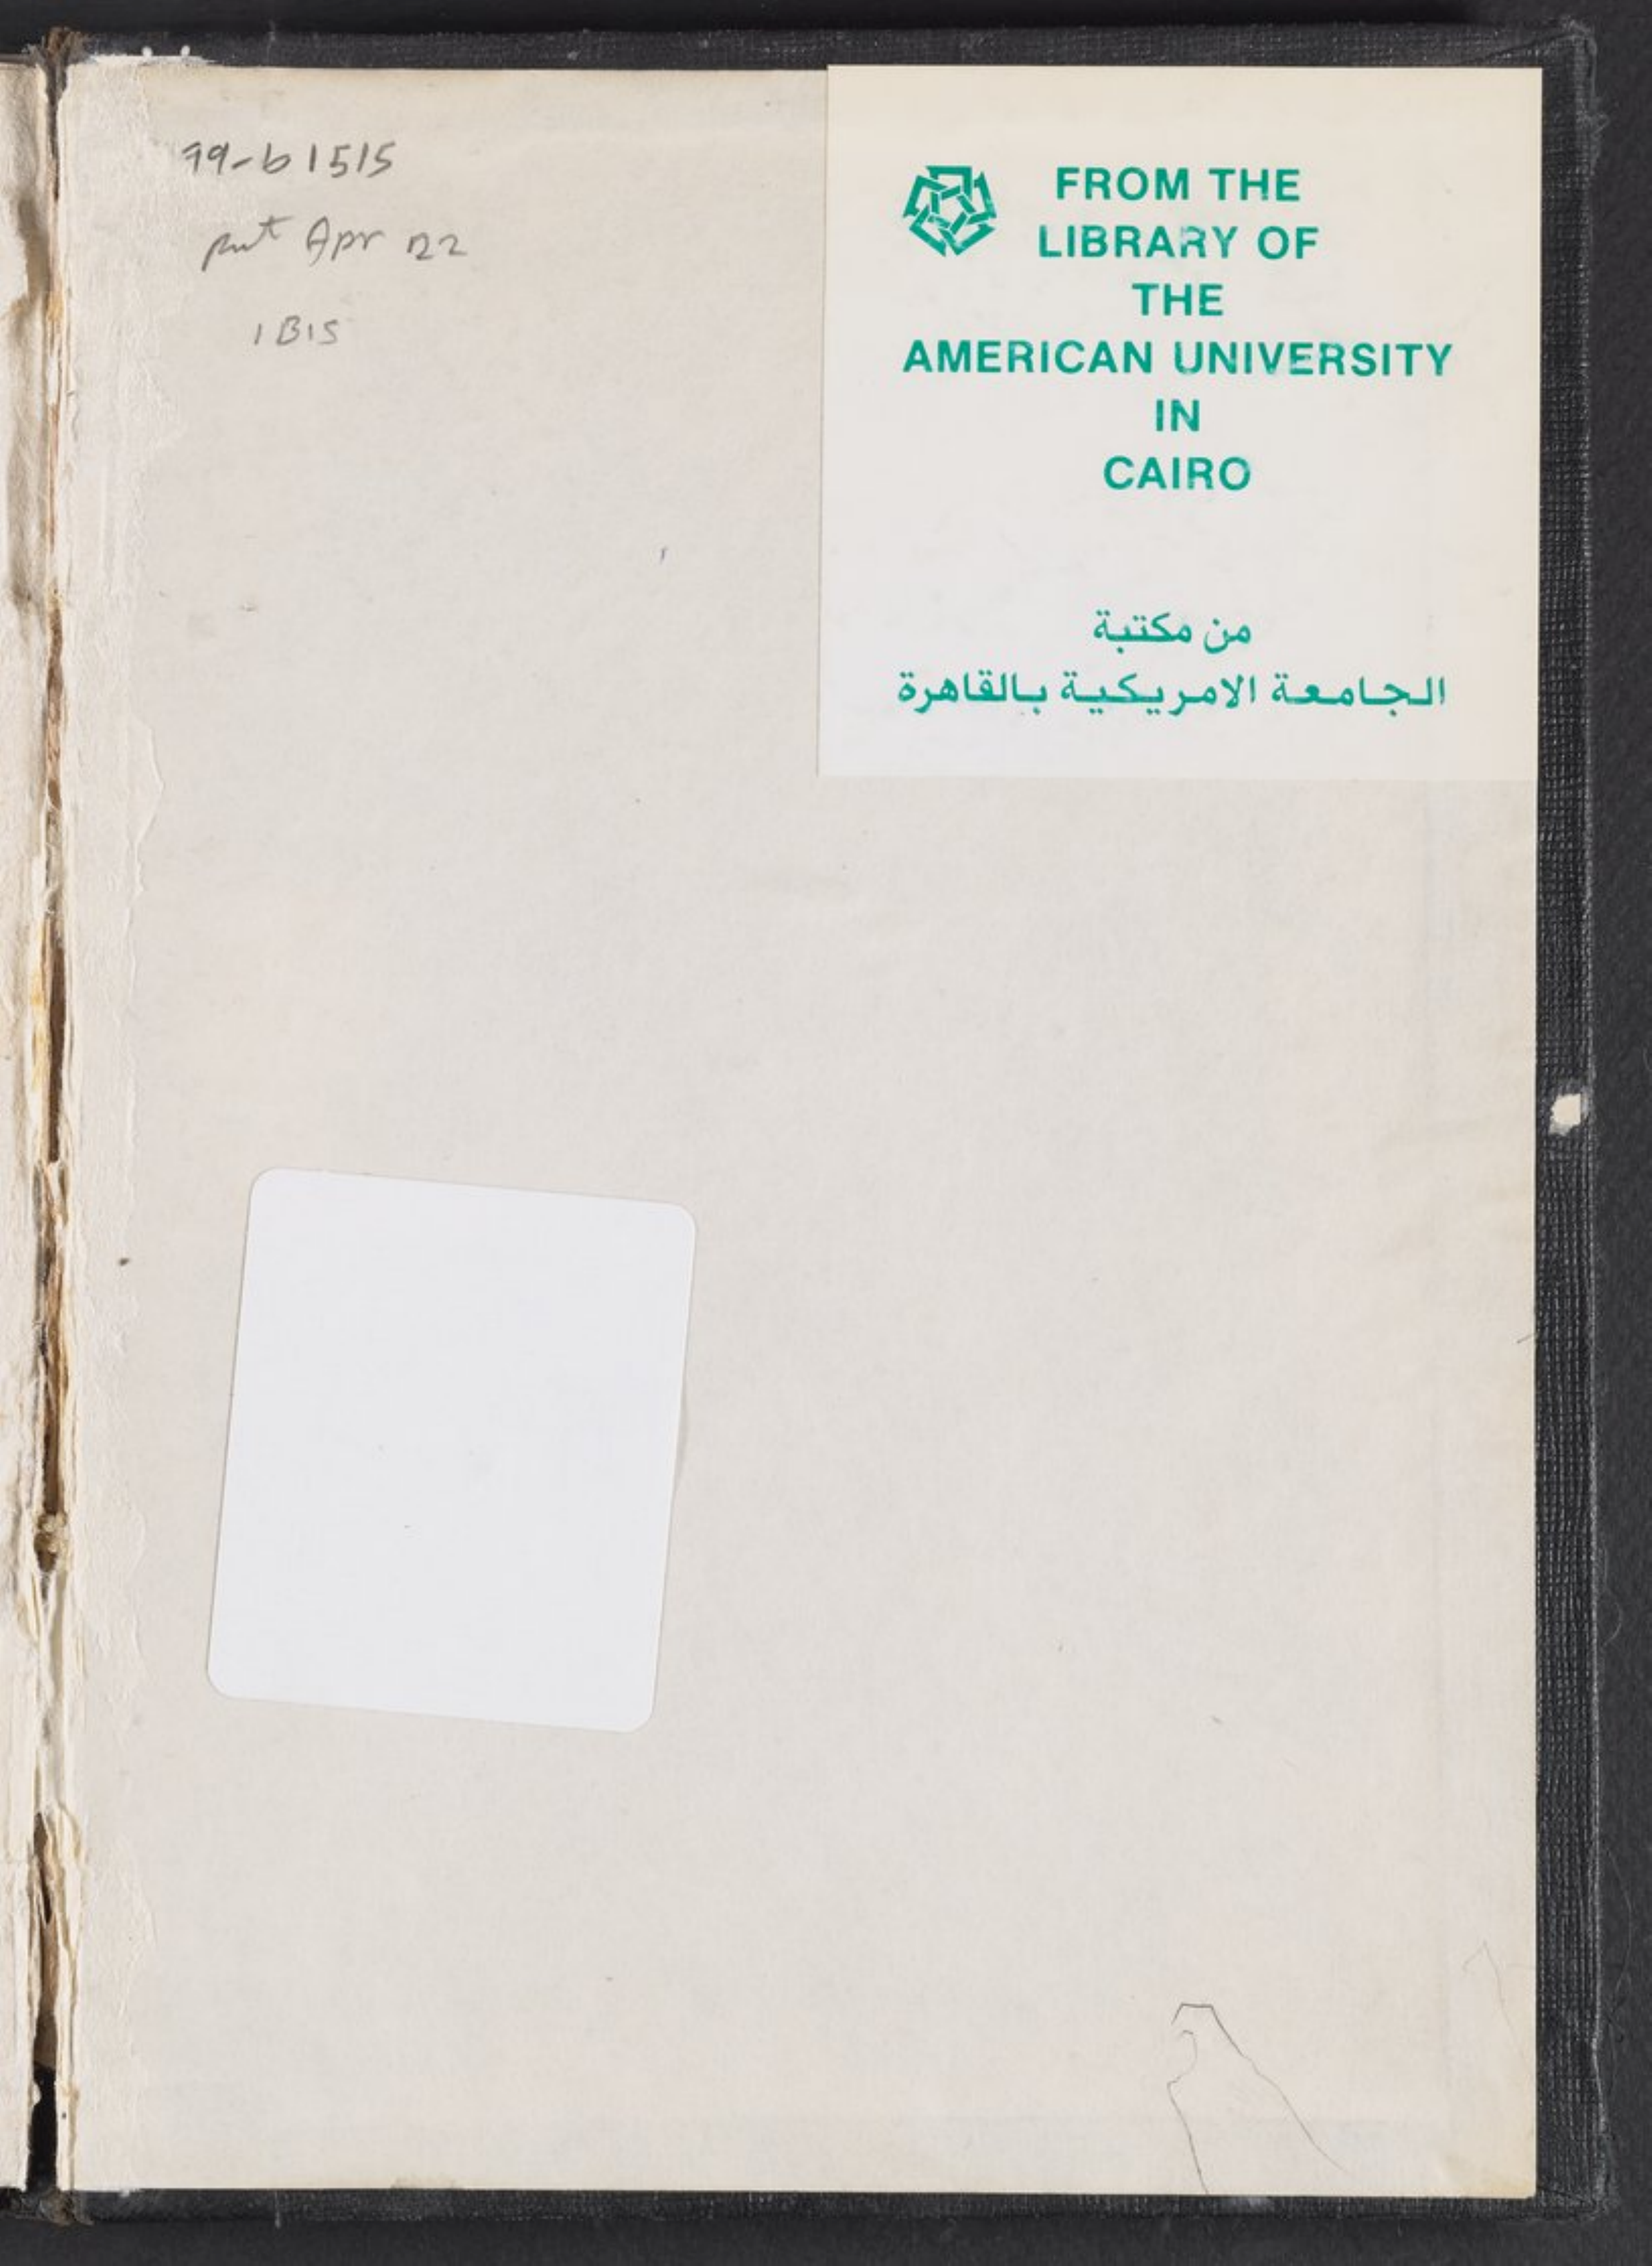 99-b1515
put Apr 22
IBIS
FROM THE
LIBRARY OF
THE
AMERICAN UNIVERSITY
IN
CAIRO
من مكتبة
الجامعة الامريكية بالقاهرة